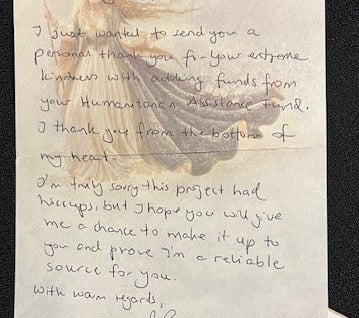 I just wanted to send you a
personal thank you fr your extreme
kindness with adding funds from
your Humanitarian Assistance Fund.
I thank you from the bottom of
my heart.
I'm truly sorry this project had
hiccups, but I hope you will give
me a chance to make it up to
you and prove I'm a reliable
source for you.
With warm regards,